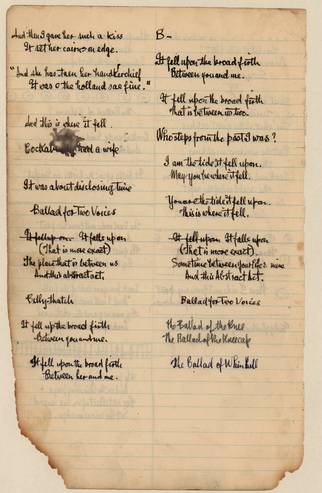 And then I gave her such a kiss
It set her coins on edge.
"And she has taen her handkerchief
It was o the holland sae fine."
And this is where it fell.
a wife
It was about disclosing time
Ballad for Two Voices
It fell upon. It falls upon
(That is more exact)
The plane that is between us
And this abstract act.
Billy thatch
It fell up the broad firth
Between you and me.
It fell upon the broad firth
Between her and me.
B—
It fell upon the broad firth
Between you and me.
It fell upon the broad firth
That is between us two.
Who steps from the past I was?
I am the tides it fell upon.
May you be where it fell.
You are the tide it fell upon.
This is where it fell.
It fell upon. It falls upon
(That is more exact).
Sometime between your life & mine
And this Abstract act.
Ballad for Two Voices
The Ballad of the
The Ballad of the Kneecap
The Ballad of Whin Hill